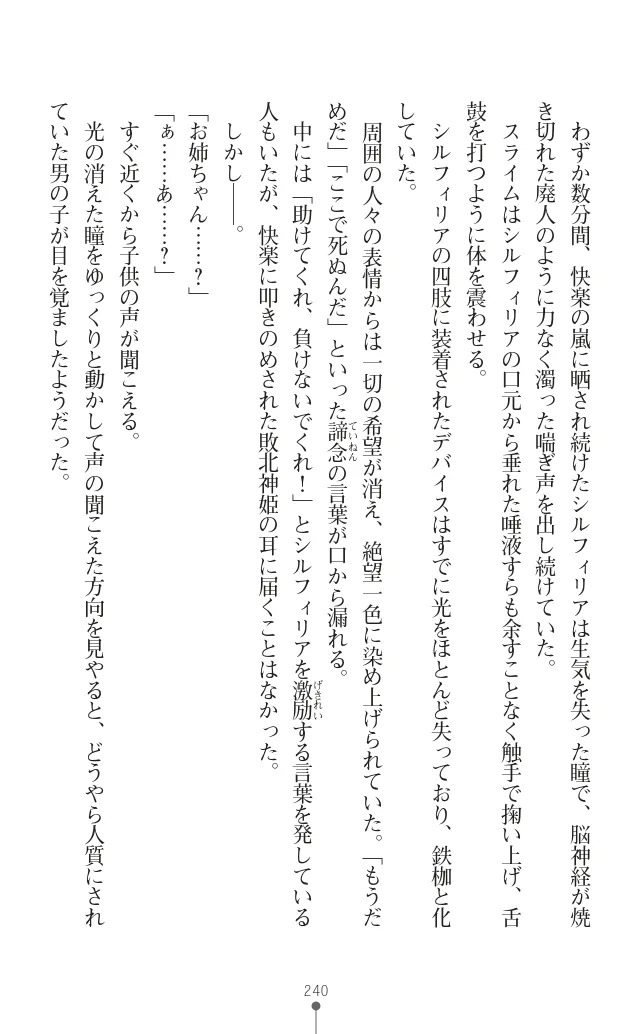 わずか数分間、快楽の嵐に晒され続けたシルフィリアは生気を失った瞳で、脳神経が焼
き切れた廃人のように力なく濁った喘ぎ声を出し続けていた。
スライムはシルフィリアの口元から垂れた唾液すらも余すことなく触手で掬い上げ、舌
鼓を打つように体を震わせる。
シルフィリアの四肢に装着されたデバイスはすでに光をほとんど失っており、鉄枷と化
していた。
周囲の人々の表情からは一切の希望が消え、絶望一色に染め上げられていた。「もうだ
めだ」「ここで死ぬんだ」といった諦念の言葉が口から漏れる。
ていねん
中には「助けてくれ、負けないでくれ！」とシルフィリアを激励する言葉を発している
げきれい
人もいたが、快楽に叩きのめされた敗北神姫の耳に届くことはなかった。
しかし――。
「お姉ちゃん……？」
「ぁ……あ……？」
すぐ近くから子供の声が聞こえる。
光の消えた瞳をゆっくりと動かして声の聞こえた方向を見やると、どうやら人質にされ
ていた男の子が目を覚ましたようだった。
240